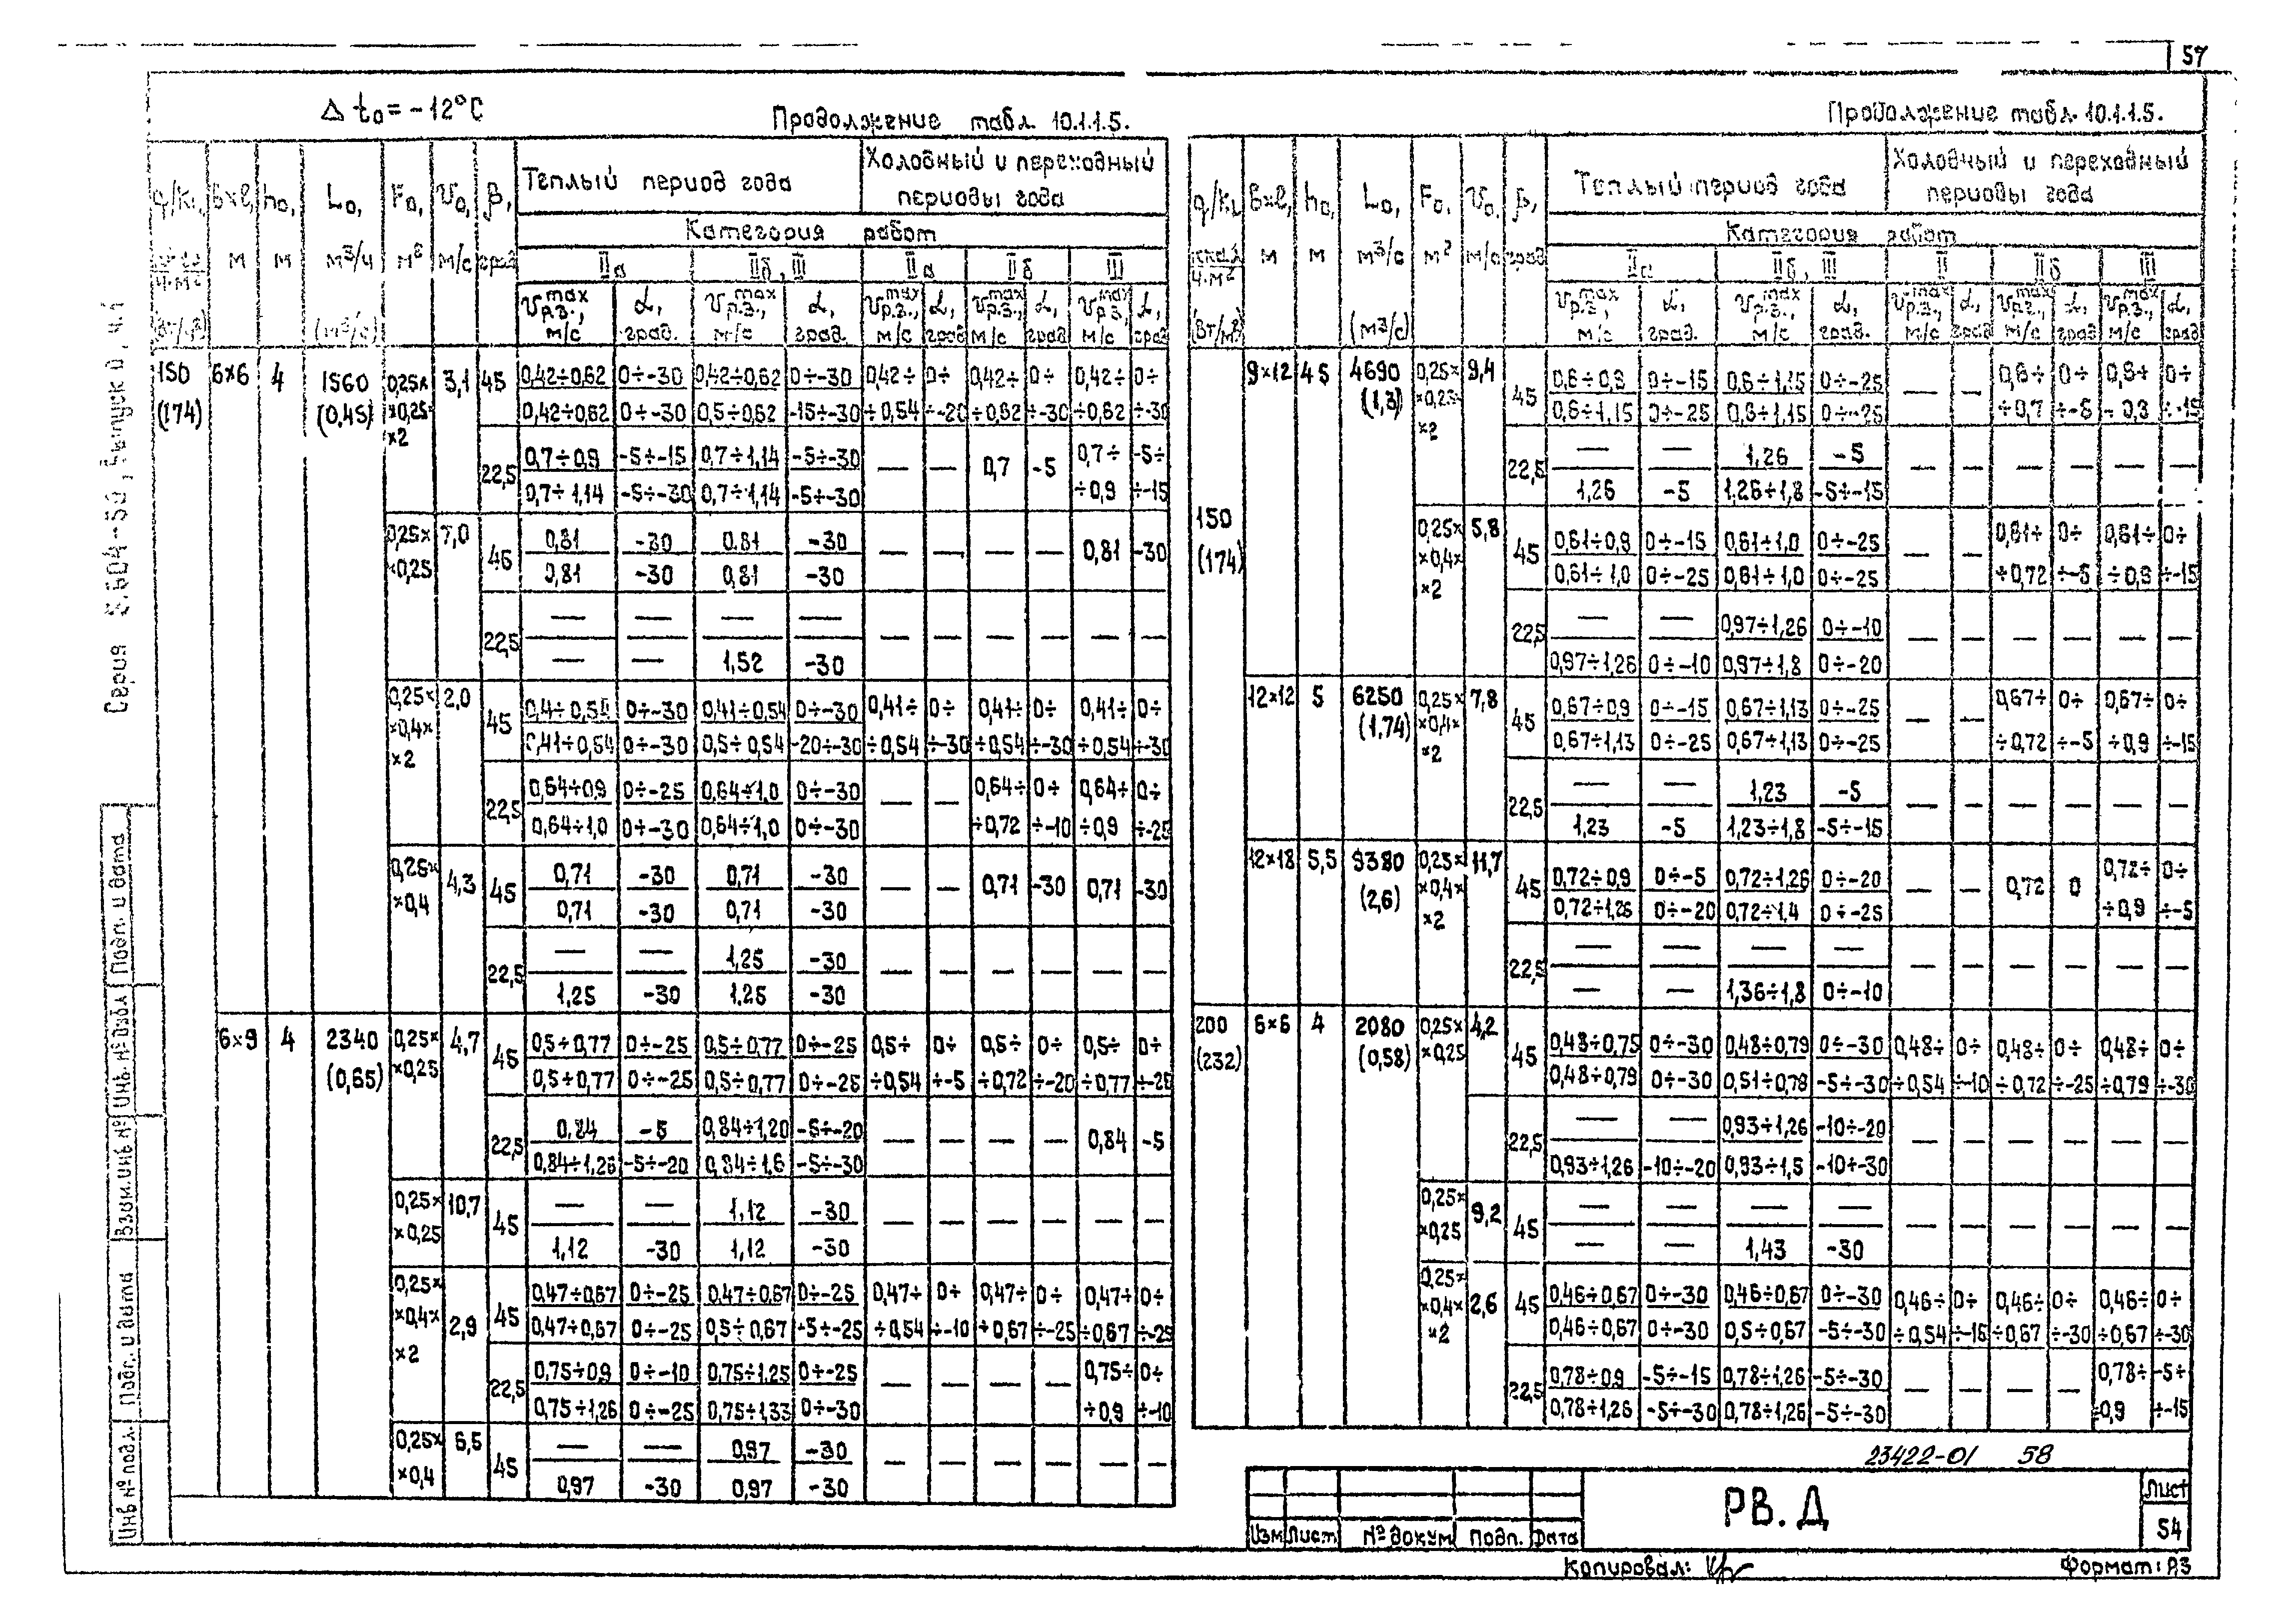 57
Δ t₀ = -12°C
Продолжение табл. 10.1.1.5.
q/k₁, b×l, h₀, L₀, F₀, v₀, β,
Теплый период года
Холодный и переходный
периоды года
Категория работ
м м м³/ч м² м/с град
IIа IIб, III IIа IIб III
(м³/с)
м/с град. м/с град. м/с град м/с град м/с град
150 6×6 4 1560 0,25× 3,1 45 0,42÷0,62 0÷-30 0,42÷0,62 0÷-30 0,42÷ 0÷ 0,42÷ 0÷ 0,42÷ 0÷
(174) (0,45) ×0,25× 0,42÷0,62 0÷-30 0,5÷0,62 -15÷-30 ÷0,54 ÷-20 ÷0,62 ÷-30 ÷0,62 ÷-30
×2
22,5 0,7÷0,9 -5÷-15 0,7÷1,14 -5÷-30 — — 0,7 -5 0,7÷ -5÷
0,7÷1,14 -5÷-30 0,7÷1,14 -5÷-30 ÷0,9 ÷-15
0,25× 7,0 45 0,81 -30 0.81 -30 — — — — 0,81 -30
×0,25 0,81 -30 0,81 -30
22,5 — — — — — — — — — —
— — 1,52 -30
0,25× 2,0 45 0,4÷0,54 0÷-30 0,41÷0,54 0÷-30 0,41÷ 0÷ 0,41÷ 0÷ 0,41÷ 0÷
×0,4× 0,41÷0,54 0÷-30 0,5÷0,54 -20÷-30 ÷0,54 ÷-30 ÷0,54 ÷-30 ÷0,54 ÷-30
×2
22,5 0,64÷0,9 0÷-25 0,64÷1,0 0÷-30 — — 0,64÷ 0÷ 0,64÷ 0÷
0,64÷1,0 0÷-30 0,64÷1,0 0÷-30 ÷0,72 ÷-10 ÷0,9 ÷-25
0,25× 4,3 45 0,71 -30 0,71 -30 — — 0,71 -30 0,71 -30
×0,4 0,71 -30 0,71 -30
22,5 — — 1,25 -30 — — — — — —
1,25 -30 1,25 -30
6×9 4 2340 0,25× 4,7 45 0,5÷0,77 0÷-25 0,5÷0,77 0÷-25 0,5÷ 0÷ 0,5÷ 0÷ 0,5÷ 0÷
(0,65) ×0,25 0,5÷0,77 0÷-25 0,5÷0,77 0÷-25 ÷0,54 ÷-5 ÷0,72 ÷-20 ÷0,77 ÷-25
22,5 0,84 -5 0,84÷1,20 -5÷-20 — — — — 0,84 -5
0,84÷1,26 -5÷-20 0,84÷1,6 -5÷-30
0,25× 10,7 45 — — 1,12 -30 — — — — — —
×0,25 1,12 -30 1,12 -30
0,25× 2,9 45 0,47÷0,67 0÷-25 0,47÷0,67 0÷-25 0,47÷ 0÷ 0,47÷ 0÷ 0,47÷ 0÷
×0,4× 0,47÷0,67 0÷-25 0,5÷0,67 -5÷-25 ÷0,54 ÷-10 ÷0,67 ÷-25 ÷0,67 ÷-25
×2
22,5 0,75÷0,9 0÷-10 0,75÷1,25 0÷-25 — — — — 0,75÷ 0÷
0,75÷1,26 0÷-25 0,75÷1,33 0÷-30 ÷0,9 ÷-10
0,25× 6,5 45 — — 0,97 -30 — — — — — —
×0,4 0,97 -30 0,97 -30
Продолжение табл. 10.1.1.5.
b×l, h₀, L₀, F₀, v₀, β,
Теплый период года
Холодный и переходный
периоды года
Категория работ
м м м³/с м² м/с град
IIа IIб, III II IIб III
(Вт/м²) (м³/с)
м/с град. м/с град. м/с град м/с град м/с град
9×12 4,5 4690 0,25× 9,4 45 0,6÷0,9 0÷-15 0,6÷1,15 0÷-25 — — 0,6÷ 0÷ 0,6÷ 0÷
(1,3) ×0,25× 0,6÷1,15 0÷-25 0,6÷1,15 0÷-25 ÷0,7 ÷-5 ÷0,9 ÷-15
×2
22,5 — — 1,26 -5 — — — — — —
1,26 -5 1,26÷1,8 -5÷-15
150
(174)
0,25× 5,8 45 0,61÷0,9 0÷-15 0,61÷1,0 0÷-25 — — 0,61÷ 0÷ 0,61÷ 0÷
×0,4× 0,61÷1,0 0÷-25 0,61÷1,0 0÷-25 ÷0,72 ÷-5 ÷0,9 ÷-15
×2
22,5 — — 0,97÷1,26 0÷-10 — — — — — —
0,97÷1,26 0÷-10 0,97÷1,8 0÷-20
12×12 5 6250 0,25× 7,8 45 0,67÷0,9 0÷-15 0,67÷1,13 0÷-25 — — 0,67÷ 0÷ 0,67÷ 0÷
(1,74) ×0,4× 0,67÷1,13 0÷-25 0,67÷1,13 0÷-25 ÷0,72 ÷-5 ÷0,9 ÷-15
×2
22,5 — — 1,23 -5 — — — — — —
1,23 -5 1,23÷1,8 -5÷-15
12×18 5,5 9380 0,25× 11,7 45 0,72÷0,9 0÷-5 0,72÷1,26 0÷-20 — — 0,72 0 0,72÷ 0÷
(2,6) ×0,4× 0,72÷1,26 0÷-20 0,72÷1,4 0÷-25 ÷0,9 ÷-5
×2
22,5 — — — — — — — — — —
— — 1,36÷1,8 0÷-10
200 6×6 4 2080 0,25× 4,2 45 0,48÷0,75 0÷-30 0,48÷0,79 0÷-30 0,48÷ 0÷ 0,48÷ 0÷ 0,48÷ 0÷
(232) (0,58) ×0,25 0,48÷0,79 0÷-30 0,51÷0,78 -5÷-30 ÷0,54 ÷-10 ÷0,72 ÷-25 ÷0,79 ÷-30
22,5 — — 0,93÷1,26 -10÷-20 — — — — — —
0,93÷1,26 -10÷-20 0,93÷1,5 -10÷-30
0,25× 9,2 45 — — — — — — — — — —
×0,25 — — 1,43 -30
0,25× 2,6 45 0,46÷0,67 0÷-30 0,46÷0,67 0÷-30 0,46÷ 0÷ 0,46÷ 0÷ 0,46÷ 0÷
×0,4× 0,46÷0,67 0÷-30 0,5÷0,67 -5÷-30 ÷0,54 ÷-15 ÷0,67 ÷-30 ÷0,67 ÷-30
×2
22,5 0,78÷0,9 -5÷-15 0,78÷1,26 -5÷-30 — — — — 0,78÷ -5÷
0,78÷1,26 -5÷-30 0,78÷1,26 -5÷-30 ÷0,9 ÷-15
23422-01 58
РВ. Д
Лист
54
Изм Лист № докум Подп. Дата
Копировал:
Формат: А3
Серия 5.904-50, Выпуск 0, ч.1
Подп. и дата
Инв № дубл
Взам. инв №
Подп. и дата
Инв № подл.